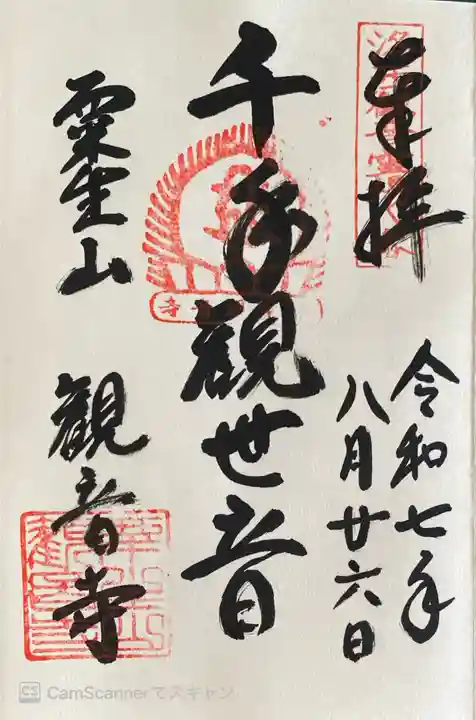 奉拝
令和七年
八月廿六日
千手観世音
粟生山
観音寺
CamScannerでスキャン